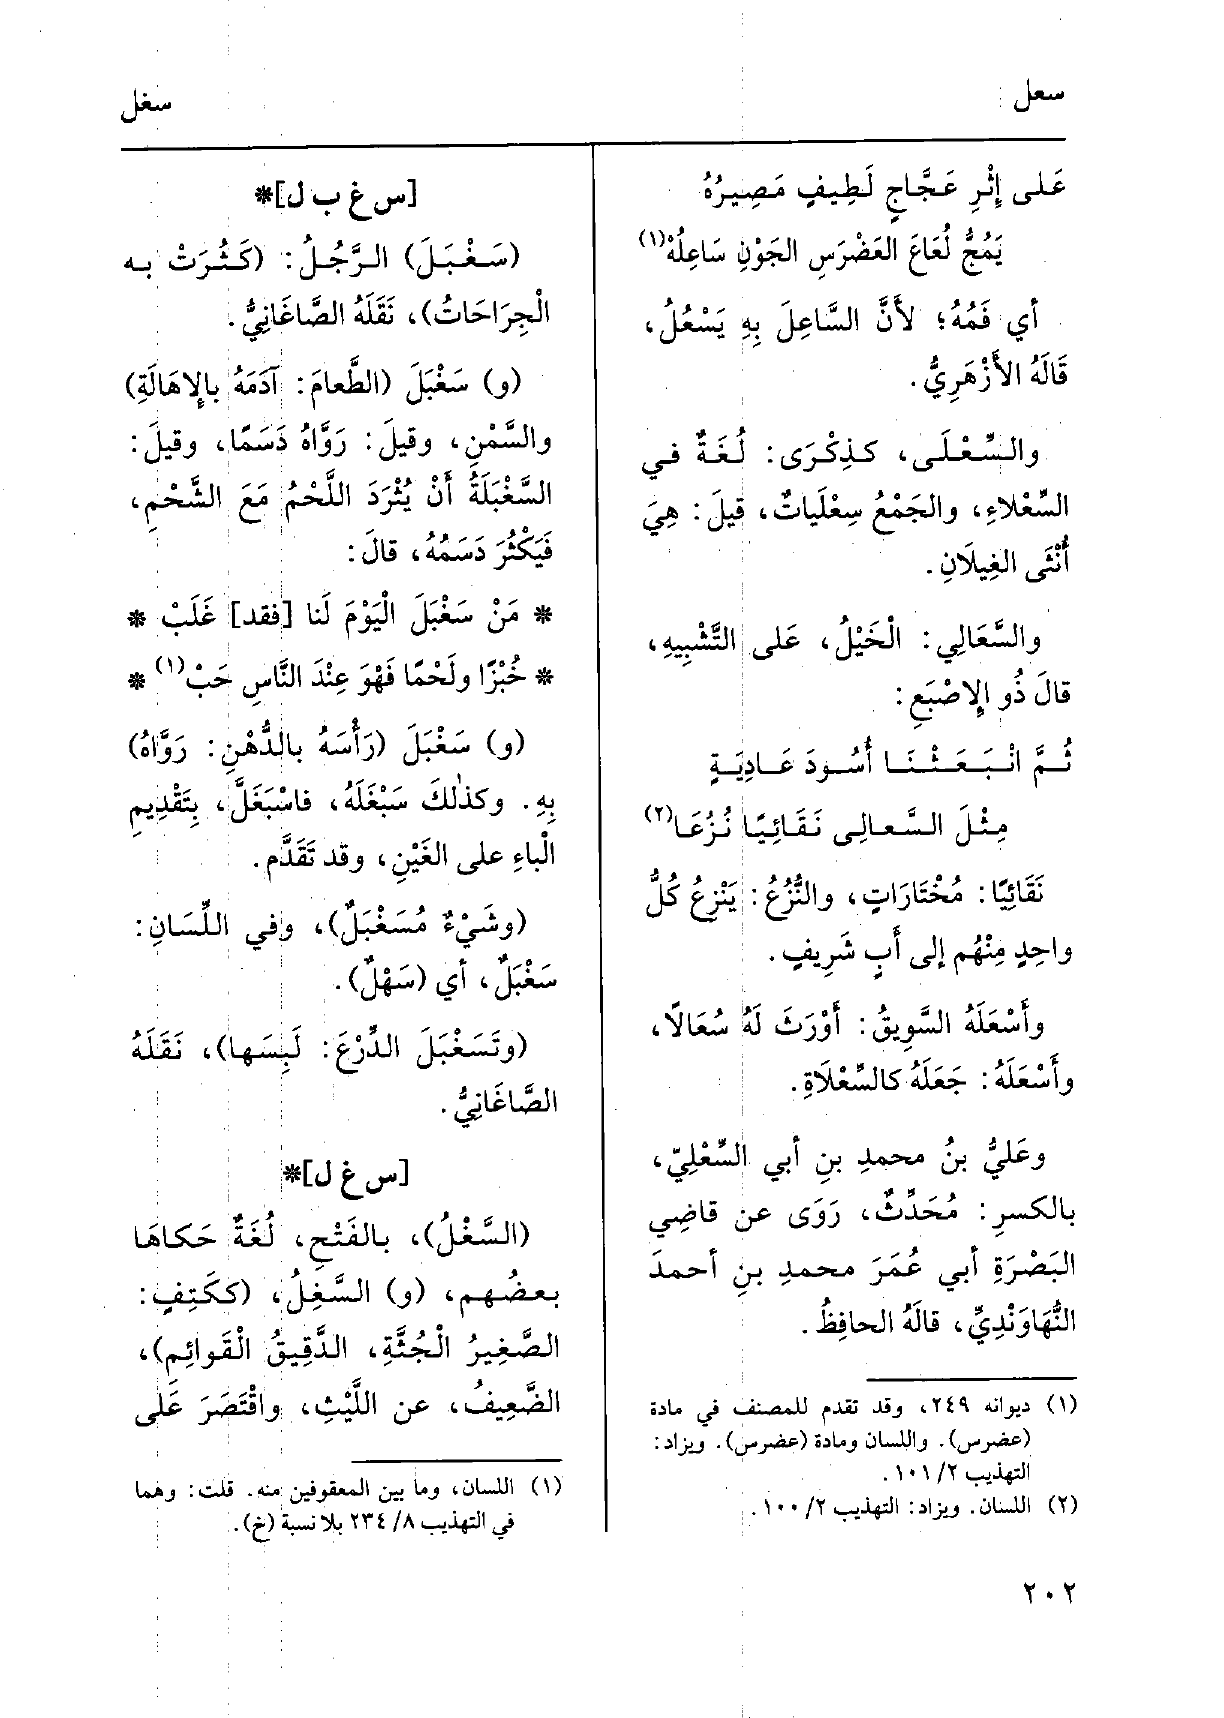 سعل
سغل
عَلى إِثْرِ عَجَّاجٍ لَطِيفٍ مَصِيرُهُ
يَمُجُّ لُعَاعَ العَضْرَسِ الجَوْنِ سَاعِلُهْ(١)
أي فَمُهُ؛ لأَنَّ السَّاعِلَ بِهِ يَسْعُلُ،
قَالَهُ الأَزْهَرِيُّ.
والسِّعْلَى، كذِكْرَى: لُغَةٌ في
السِّعْلاءِ، والجَمْعُ سِعْلَياتٌ، قيلَ: هِيَ
أُنْثَى الغِيلَانِ.
والسَّعَالِي: الْخَيْلُ، عَلى التَّشْبِيهِ،
قالَ ذُو الإِصْبَعِ:
ثُمَّ انْبَعَثْنَا أُسُودَ عَادِيَةٍ
مِثْلَ السَّعالِى نَقَائِيًا نُزُعَا(٢)
نَقَائِيًا: مُخْتَارَاتٍ، والنُّزُعُ: يَنْزِعُ كُلُّ
واحِدٍ مِنْهُم إلى أَبٍ شَرِيفٍ.
وأَسْعَلَهُ السَّوِيقُ: أَوْرَثَ لَهُ سُعَالًا،
وأَسْعَلَهُ: جَعَلَهُ كالسِّعْلَاةِ.
وعَليُّ بنُ محمدِ بنِ أبي السِّعْلِيّ،
بالكسرِ: مُحَدِّثٌ، رَوَى عن قاضِي
البَصْرَةِ أبي عُمَرَ محمدِ بنِ أحمدَ
النُّهَاوَنْدِيِّ، قالَهُ الحافِظُ.
(١) ديوانه ٢٤٩، وقد تقدم للمصنف في مادة
(عضرس). واللسان ومادة (عضرس). ويزاد:
التهذيب ٢/ ١٠١.
(٢) اللسان. ويزاد: التهذيب ٢/ ١٠٠.
[س غ ب ل]*
(سَغْبَلَ) الرَّجُلُ: (كَثُرَتْ به
الْجِرَاحَاتُ)، نَقَلَهُ الصَّاغَانِيُّ.
(و) سَغْبَلَ (الطَّعامَ: آدَمَهُ بالإِهَالَةِ)
والسَّمْنِ، وقيلَ: رَوَّاهُ دَسَمًا، وقيلَ:
السَّغْبَلَةُ أَنْ يُثْرَدَ اللَّحْمُ مَعَ الشَّحْمِ،
فَيَكْثُرَ دَسَمُهُ، قالَ:
* مَنْ سَغْبَلَ الْيَوْمَ لَنا [فقد] غَلَبْ *
* خُبْزًا ولَحْمًا فَهْوَ عِنْدَ النَّاسِ حَبْ(١) *
(و) سَغْبَلَ (رَأْسَهُ بالدُّهْنِ: رَوَّاهُ)
بِهِ. وكذٰلكَ سَبْغَلَهُ، فاسْبَغَلَّ، بِتَقْدِيمِ
الْباءِ على الغَيْنِ، وقد تَقَدَّم.
(وشَيْءٌ مُسَغْبَلٌ)، وفي اللِّسَانِ:
سَغْبَلٌ، أي (سَهْلٌ).
(وتَسَغْبَلَ الدِّرْعَ: لَبِسَها)، نَقَلَهُ
الصَّاغَانِيُّ.
[س غ ل]*
(السَّغْلُ)، بالفَتْحِ، لُغَةٌ حَكاهَا
بعضُهم، (و) السَّغِلُ، (ككَتِفٍ:
الصَّغِيرُ الْجُثَّةِ، الدَّقِيقُ الْقَوائِمِ)،
الضَّعِيفُ، عن اللَّيْثِ، واقْتَصَرَ عَلَى
(١) اللسان، وما بين المعقوفين منه. قلت: وهما
في التهذيب ٨/ ٢٣٤ بلا نسبة (خ).
٢٠٢